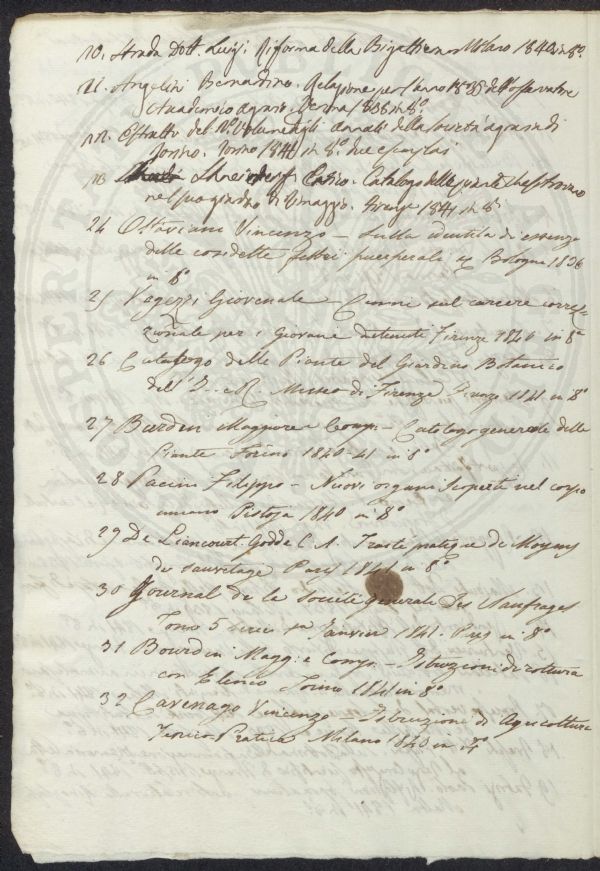 20. Strada Dott. Luigi Riforma della Bigattiera Milano 1840 in 8°.
21. Angelini Bernardino. Relazione per l'anno 1835 dell'osservatore
Accademico agrario. Verona 1836 in 8°.
22. Estratto del Volume degli annali della società agraria di
Torino. Torino 1841 in 8°. due esemplari
23 Catalogo delle piante che si trovano
nel suo giardino di Vinaggio. Firenze 1841 in 8°
24 Ottaviani Vincenzo – Sulla identità di essenza
delle cosidette febbri puerperali Bologna 1836
in 8°
25 Vagezzi Giovenale – Cenni sul carcere corre-
zionale per i Giovani detenuti Firenze 1840 in 8°
26 Catalogo delle Piante del Giardino Botanico
del I. e R. Museo di Firenze Firenze 1841 in 8°
27 Burdin Maggiore e Comp. – Catalogo generale delle
Piante Torino 1840-41 in 8°
28 Pacini Filippo – Nuovi organi scoperti nel corpo
umano Pistoja 1840 in 8°
29 De Liancourt Godde C. A. Traité pratique de Moyens
de sauvetage Paris 1841 in 8°
30 Journal de la Société generale Des Naufrages
Tomo 5 serie Janvier 1841. Paris in 8°
31 Bourdin Magg. e Comp. – Istruzioni di coltura
con Elenco Torino 1841 in 8°
32 Cavenago Vincenzo – Istruzione di Agricoltura
Teorico-Pratica Milano 1840 in 4°